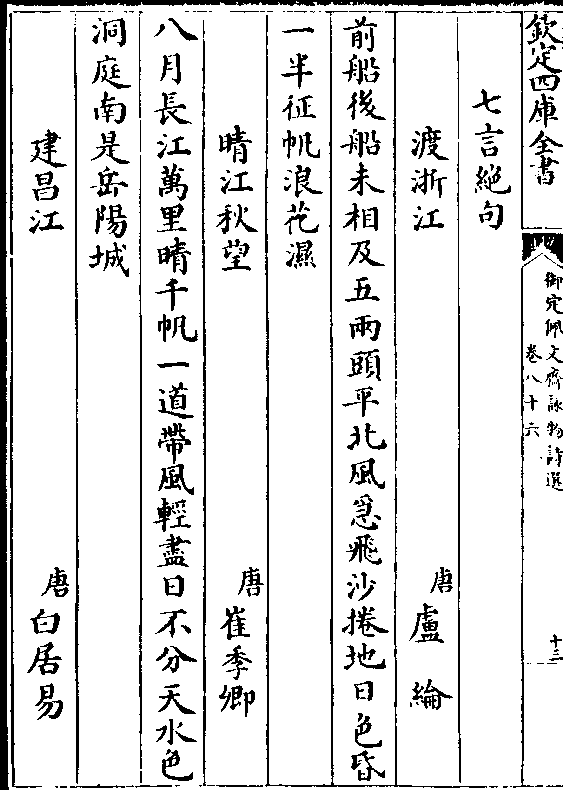 欽定四庫全書
御定佩文齋詠物詩選
卷八十六
十三
七言絕句
渡浙江 唐 盧綸
前船後船未相及五兩頭平北風急飛沙捲地日色昏
一半征帆浪花濕
晴江秋望 唐 崔季卿
八月長江萬里晴千帆一道帶風輕盡日不分天水色
洞庭南是岳陽城
建昌江 唐 白居易